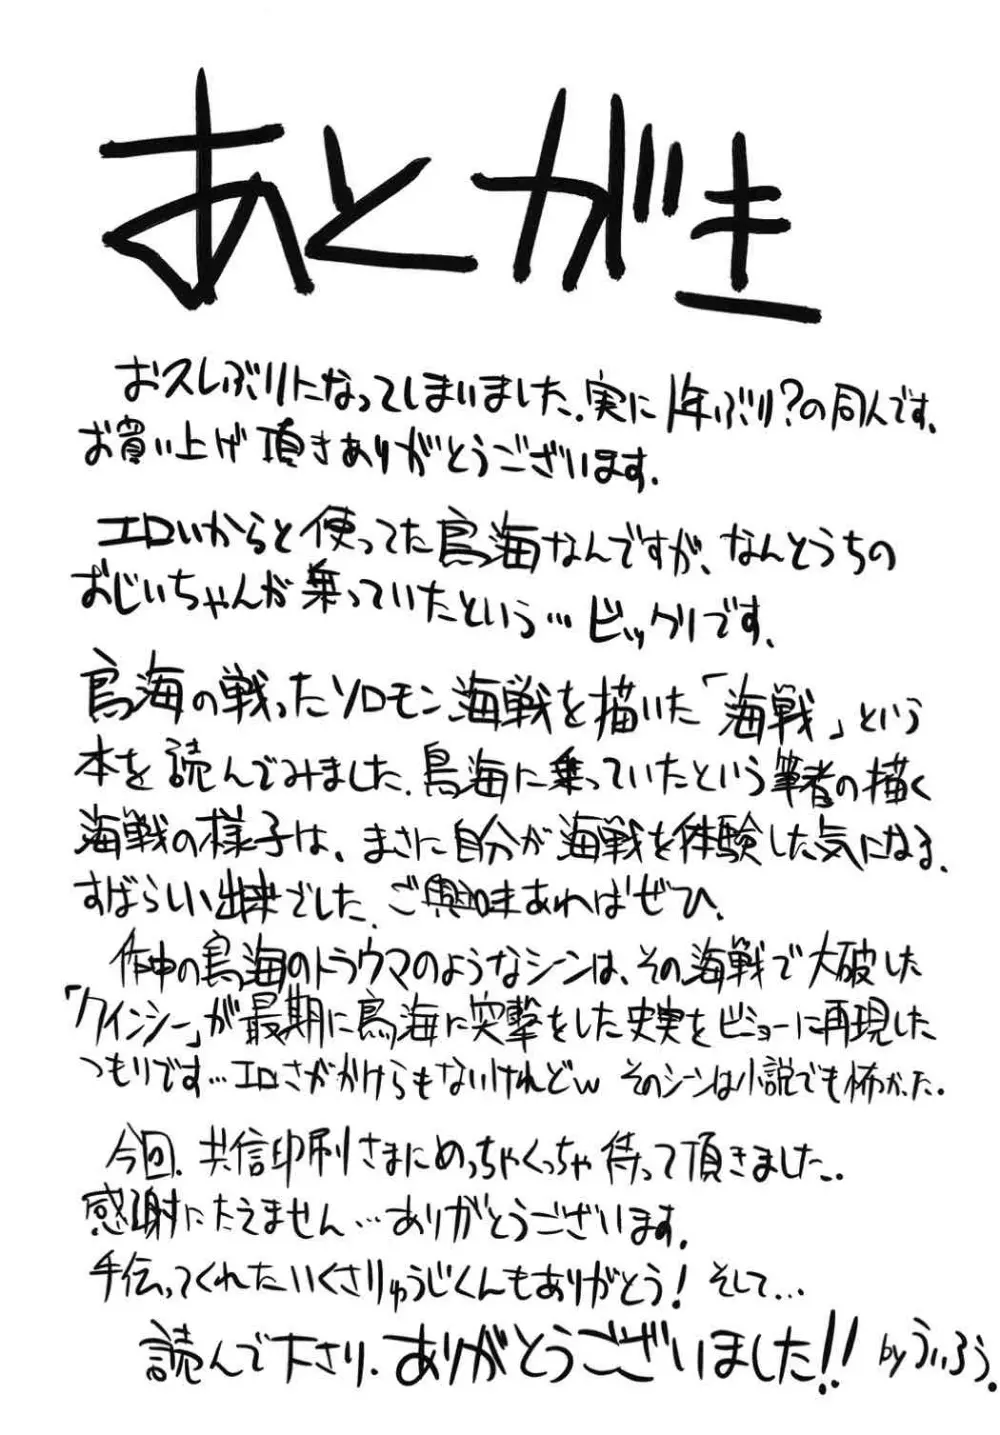 あとがき
お久しぶりになってしまいました.実に1年ぶり?の同人です.
お買い上げ頂きありがとうございます.
エロいからと使ってた鳥海なんですが、なんとうちの
おじいちゃんが乗っていたという…ビックリです.
鳥海の戦ったソロモン海戦を描いた「海戦」という
本を読んでみました.鳥海に乗っていたという筆者の描く
海戦の様子は、まさに自分が海戦を体験した気になる.
すばらしい出来でした.ご興味あればぜひ.
作中の鳥海のトラウマのようなシーンは、その海戦で大破した
「クインシー」が最期に鳥海に突撃をした史実をビミョーに再現した
つもりです…エロさがかけらもないけれどw そのシーンは小説でも怖かった.
今回、共信印刷さまにめっちゃくっちゃ待って頂きました..
感謝にたえません…ありがとうございます.
手伝ってくれたいくさりゅうじくんもありがとう! そして...
読んで下さり、ありがとうございました!! byういろう.